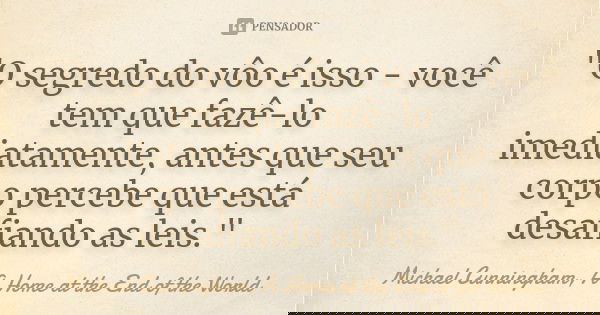 PENSADOR
"O segredo do vôo é isso - você
tem que fazê-lo
imediatamente, antes que seu
corpo percebe que está
desafiando as leis."
Michael Cunningham, A Home at the End of the World